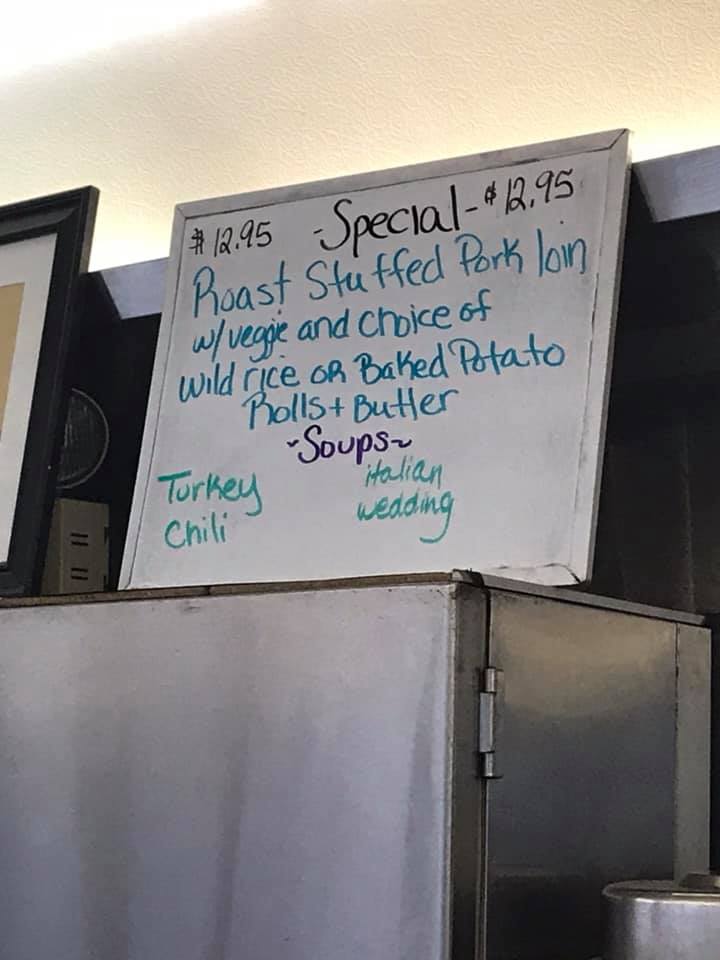 $12.95 -Special- $12.95
Roast Stuffed Pork loin
w/veggie and choice of
wild rice OR Baked Potato
Rolls + Butter
~Soups~
Turkey italian
Chili wedding